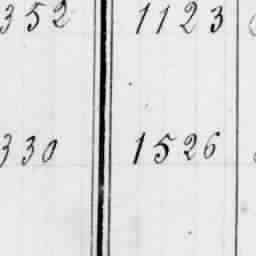 352 1123
330 1526